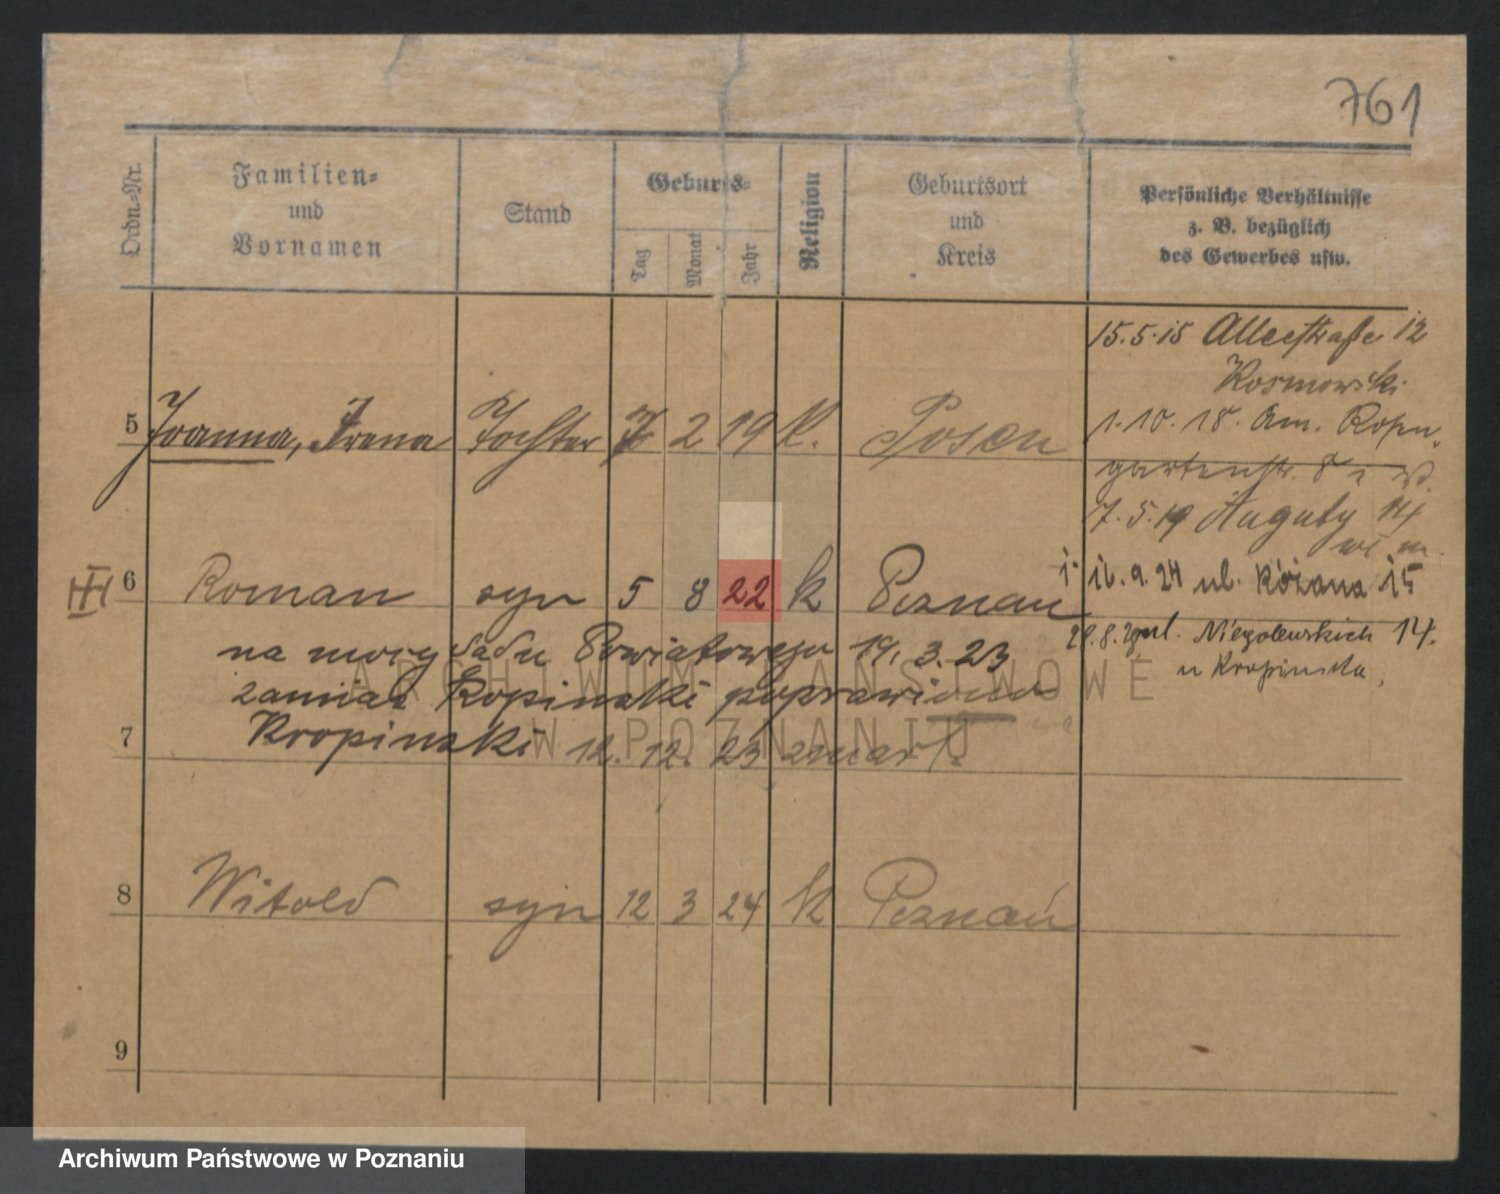 761
Ordn.-Nr.
Familien-
und
Vornamen
Stand
Geburts-
Tag
Monat
Jahr
Religion
Geburtsort
und
Kreis
Persönliche Verhältnisse
z. B. bezüglich
des Gewerbes usw.
15.5.15 Alleestraße 12
Kosmowski
5 Joanna, Irena Tochter 7 2 19 K. Posen
1.10.18. Am.
gartenstr. 8
7.5.19 Augusty 14
6 Roman syn 5 8 22 k Poznań
16.9.24 ul. Różana 15
ul. Niegolewskich 14.
u Kropinska,
na mocy Sadu Powiatowego 19.3.23
zamiast Kopinski poprawiono
7 Kropinski 12.12.23 zmarł.
8 Witold syn 12 3 24 k Poznań
9
ARCHIWUM PAŃSTWOWE
W POZNANIU
Archiwum Państwowe w Poznaniu